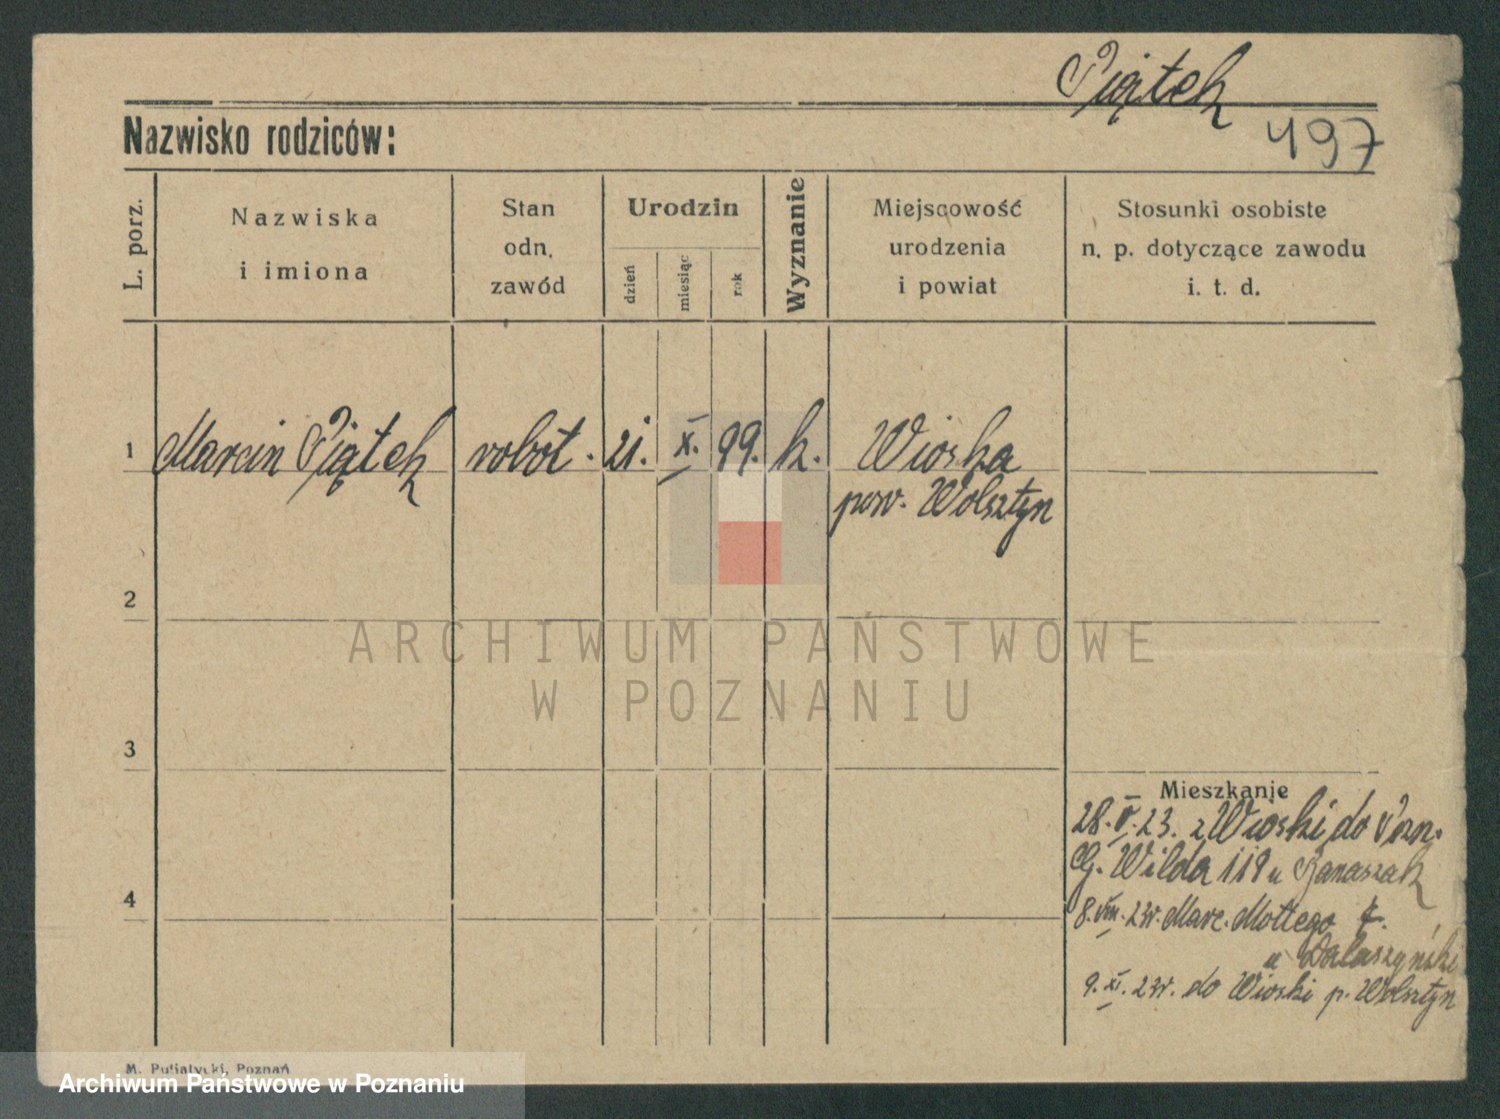 Piątek
497
Nazwisko rodziców:
L. porz.
Nazwiska
i imiona
Stan
odn.
zawód
Urodzin
dzień
miesiąc
rok
Wyznanie
Miejscowość
urodzenia
i powiat
Stosunki osobiste
n. p. dotyczące zawodu
i. t. d.
1 Marcin Piątek robot. 21. X. 99. k. Wioska
pow. Wolsztyn
2
ARCHIWUM PAŃSTWOWE
W POZNANIU
3
Mieszkanie
28.V.23. z Wioski do Pozn.
G. Wilda 119 u Banaszak
8.VIII.23r. Marc. Mottego
u
9.XI.23r. do Wioski p. Wolsztyn
4
M. Putiatycki, Poznań
Archiwum Państwowe w Poznaniu